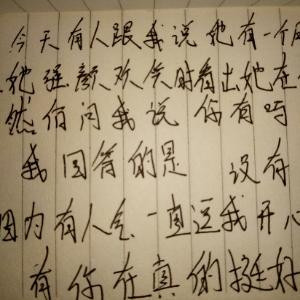 今天有人跟我说她有一个
她强颜欢笑时看出她在
然有问我说 你有吗
我回答的是 没有
因为有人会一直逗我开心
有你在真的挺好